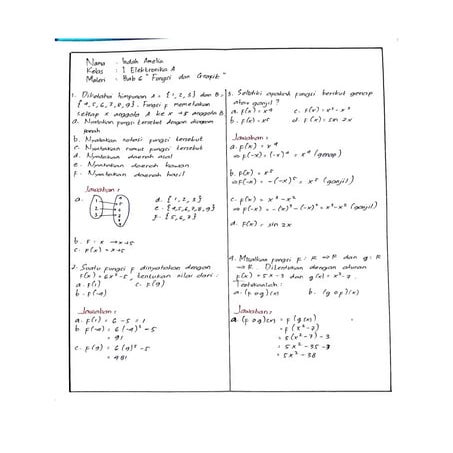 Nama : Indah Amelia
Kelas : 1 Elektronika A
Materi : Bab 6 "Fungsi dan Grafik"
1. Diketahui himpunan A = {1, 2, 3} dan B =
{4, 5, 6, 7, 8, 9}. Fungsi f memetakan
setiap x anggota A ke x+5 anggota B
a. Nyatakan fungsi tersebut dengan diagram
panah
b. Nyatakan notasi fungsi tersebut
c. Nyatakan rumus fungsi tersebut
d. Nyatakan daerah asal
e. Nyatakan daerah kawan
f. Nyatakan daerah hasil
Jawaban :
a.
d. {1, 2, 3}
e. {4,5,6,7,8,9}
f. {5,6,7}
b. f : x → x+5
c. f(x) = x+5
2. Suatu fungsi f dinyatakan dengan
f(x) = 6x²-5, tentukan nilai dari :
a. f(1) c. f(9)
b. f(-4)
Jawaban :
a. f(1) = 6 - 5 = 1
b. f(-4) = 6(-4)² - 5
= 91
c. f(9) = 6(9)² - 5
= 481
3. Selidiki apakah fungsi berikut genap
atau ganjil ?
a. f(x) = x⁴ c. f(x) = x³ - x²
b. f(x) = x⁵ d. f(x) = sin 2x
Jawaban :
a. f(x) = x⁴
⇒ f(-x) = (-x)⁴ = x⁴ (genap)
b. f(x) = x⁵
⇒ f(-x) = -(-x)⁵ = x⁵ (ganjil)
c. f(x) = x³ - x²
d. f(x) = sin 2x
4. Misalkan fungsi f : R → R dan g : R
→ R. Ditentukan dengan aturan
f(x) = 5x - 3 dan g(x) = x² - 7.
Tentukanlah :
a. (f o g)(x) b. (g o f)(x)
Jawaban :
a. (f o g)(x) = f(g(x))
= f(x²-7)
= 5(x²-7) - 3
= 5x² - 35 - 3
= 5x² - 38